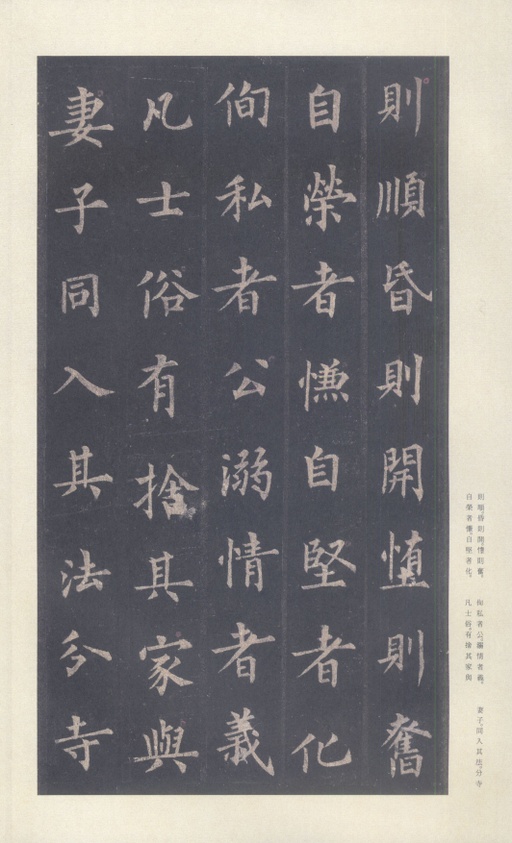 則順昏則開惰則奮
自榮者慊自堅者化
侚私者公溺情者義
凡士俗有捨其家與
妻子同入其法分寺
則順,昏則開,惰則奮。
自榮者慊,自堅者化。
徇私者公,溺情者義。
凡士俗,有捨其家與
妻子,同入其法,分寺